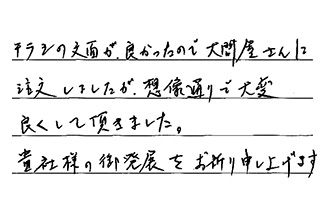 チラシの文面が良かったので大問屋さんに
注文しましたが、想像通りで大変
良くして頂きました。
貴社様の御発展をお祈り申し上げます